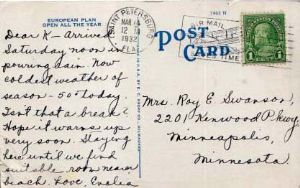 EUROPEAN PLAN
OPEN ALL THE YEAR
Dear K - Arrived
Saturday noon in
pouring rain. Now
coldest weather of
season - 50 today.
Isn't that a break?
Hope it warms up
very soon. Staying
here until we find
suitable room nearer
beach. Love,
SAINT PETERSBURG
MAR 14
12 M
1932
FLA.
AIR MAIL
TIME
POST CARD
1 1
Mrs. Roy E. Swanson,
2201 Kenwood Pkwy.
Minneapolis,
Minnesota